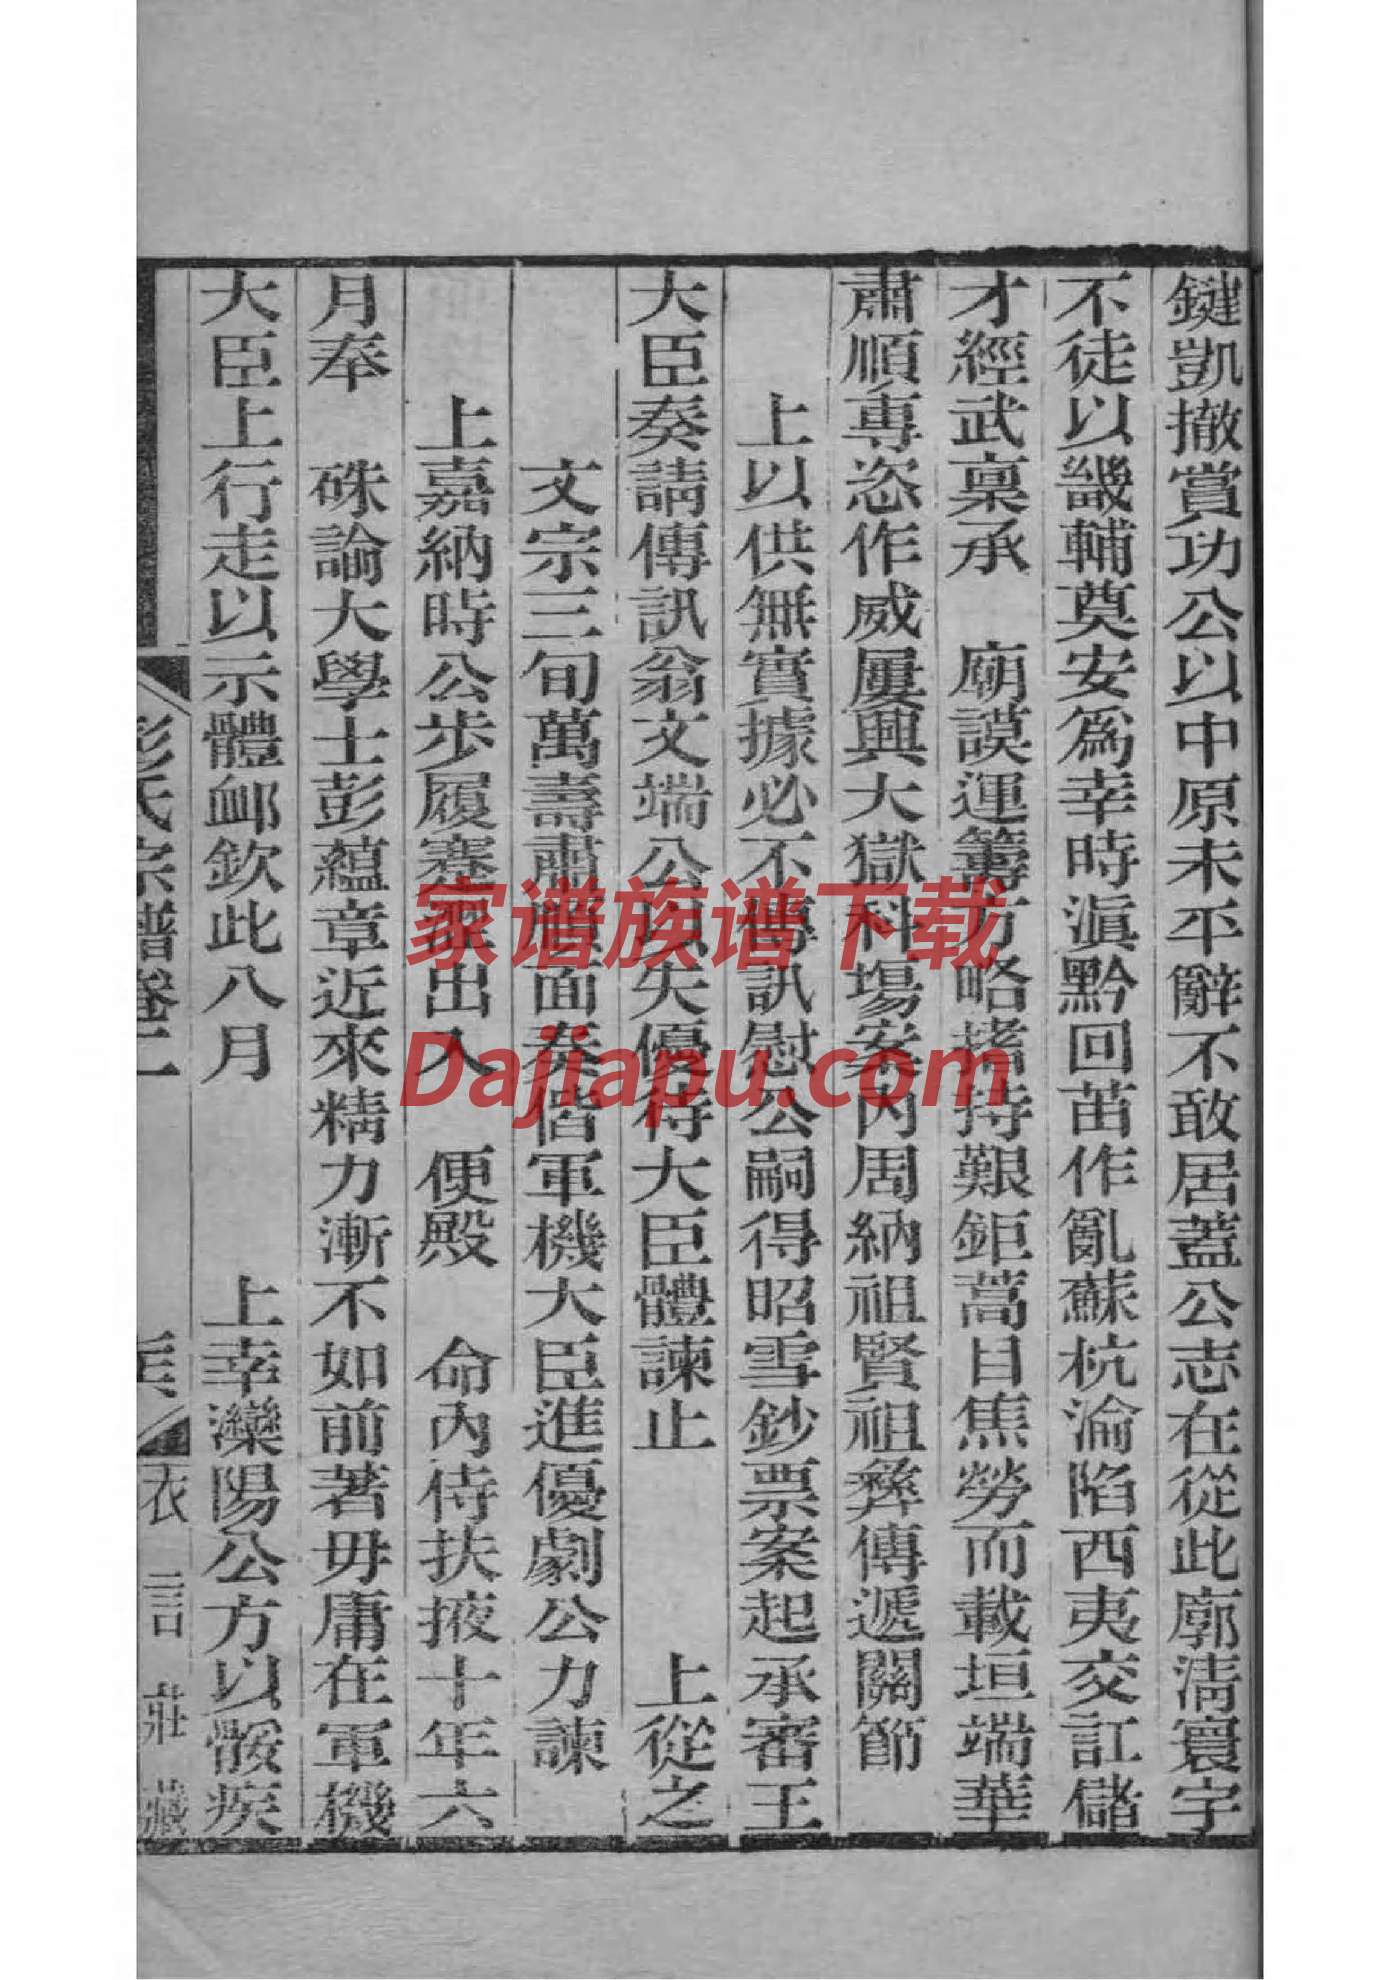 鍵凱撤賞功公以中原未平辭不敢居蓋公志在從此廓淸寰宇
不徒以畿輔奠安爲幸時滇黔回苗作亂蘇杭淪陷西夷交訌儲
才經武稟承　廟謨運籌方略搘持艱鉅蒿目焦勞而載垣端華
肅順專恣作威屢興大獄科場案內周納祖賢祖彝傳遞關節
上以供無實據必不傳訊慰公嗣得昭雪鈔票案起承審王
大臣奏請傳訊翁文端公以失優待大臣體諫止　上從之
文宗三旬萬壽肅順面奏偕軍機大臣進優劇公力諫
上嘉納時公步履蹇緩出入　便殿　命內侍扶掖十年六
月奉　硃諭大學士彭蘊章近來精力漸不如前著毋庸在軍機
大臣上行走以示體卹欽此八月　上幸灤陽公方以骽疾
彭氏宗譜卷二
衣言莊藏
家谱族谱下载
Dajiapu.com